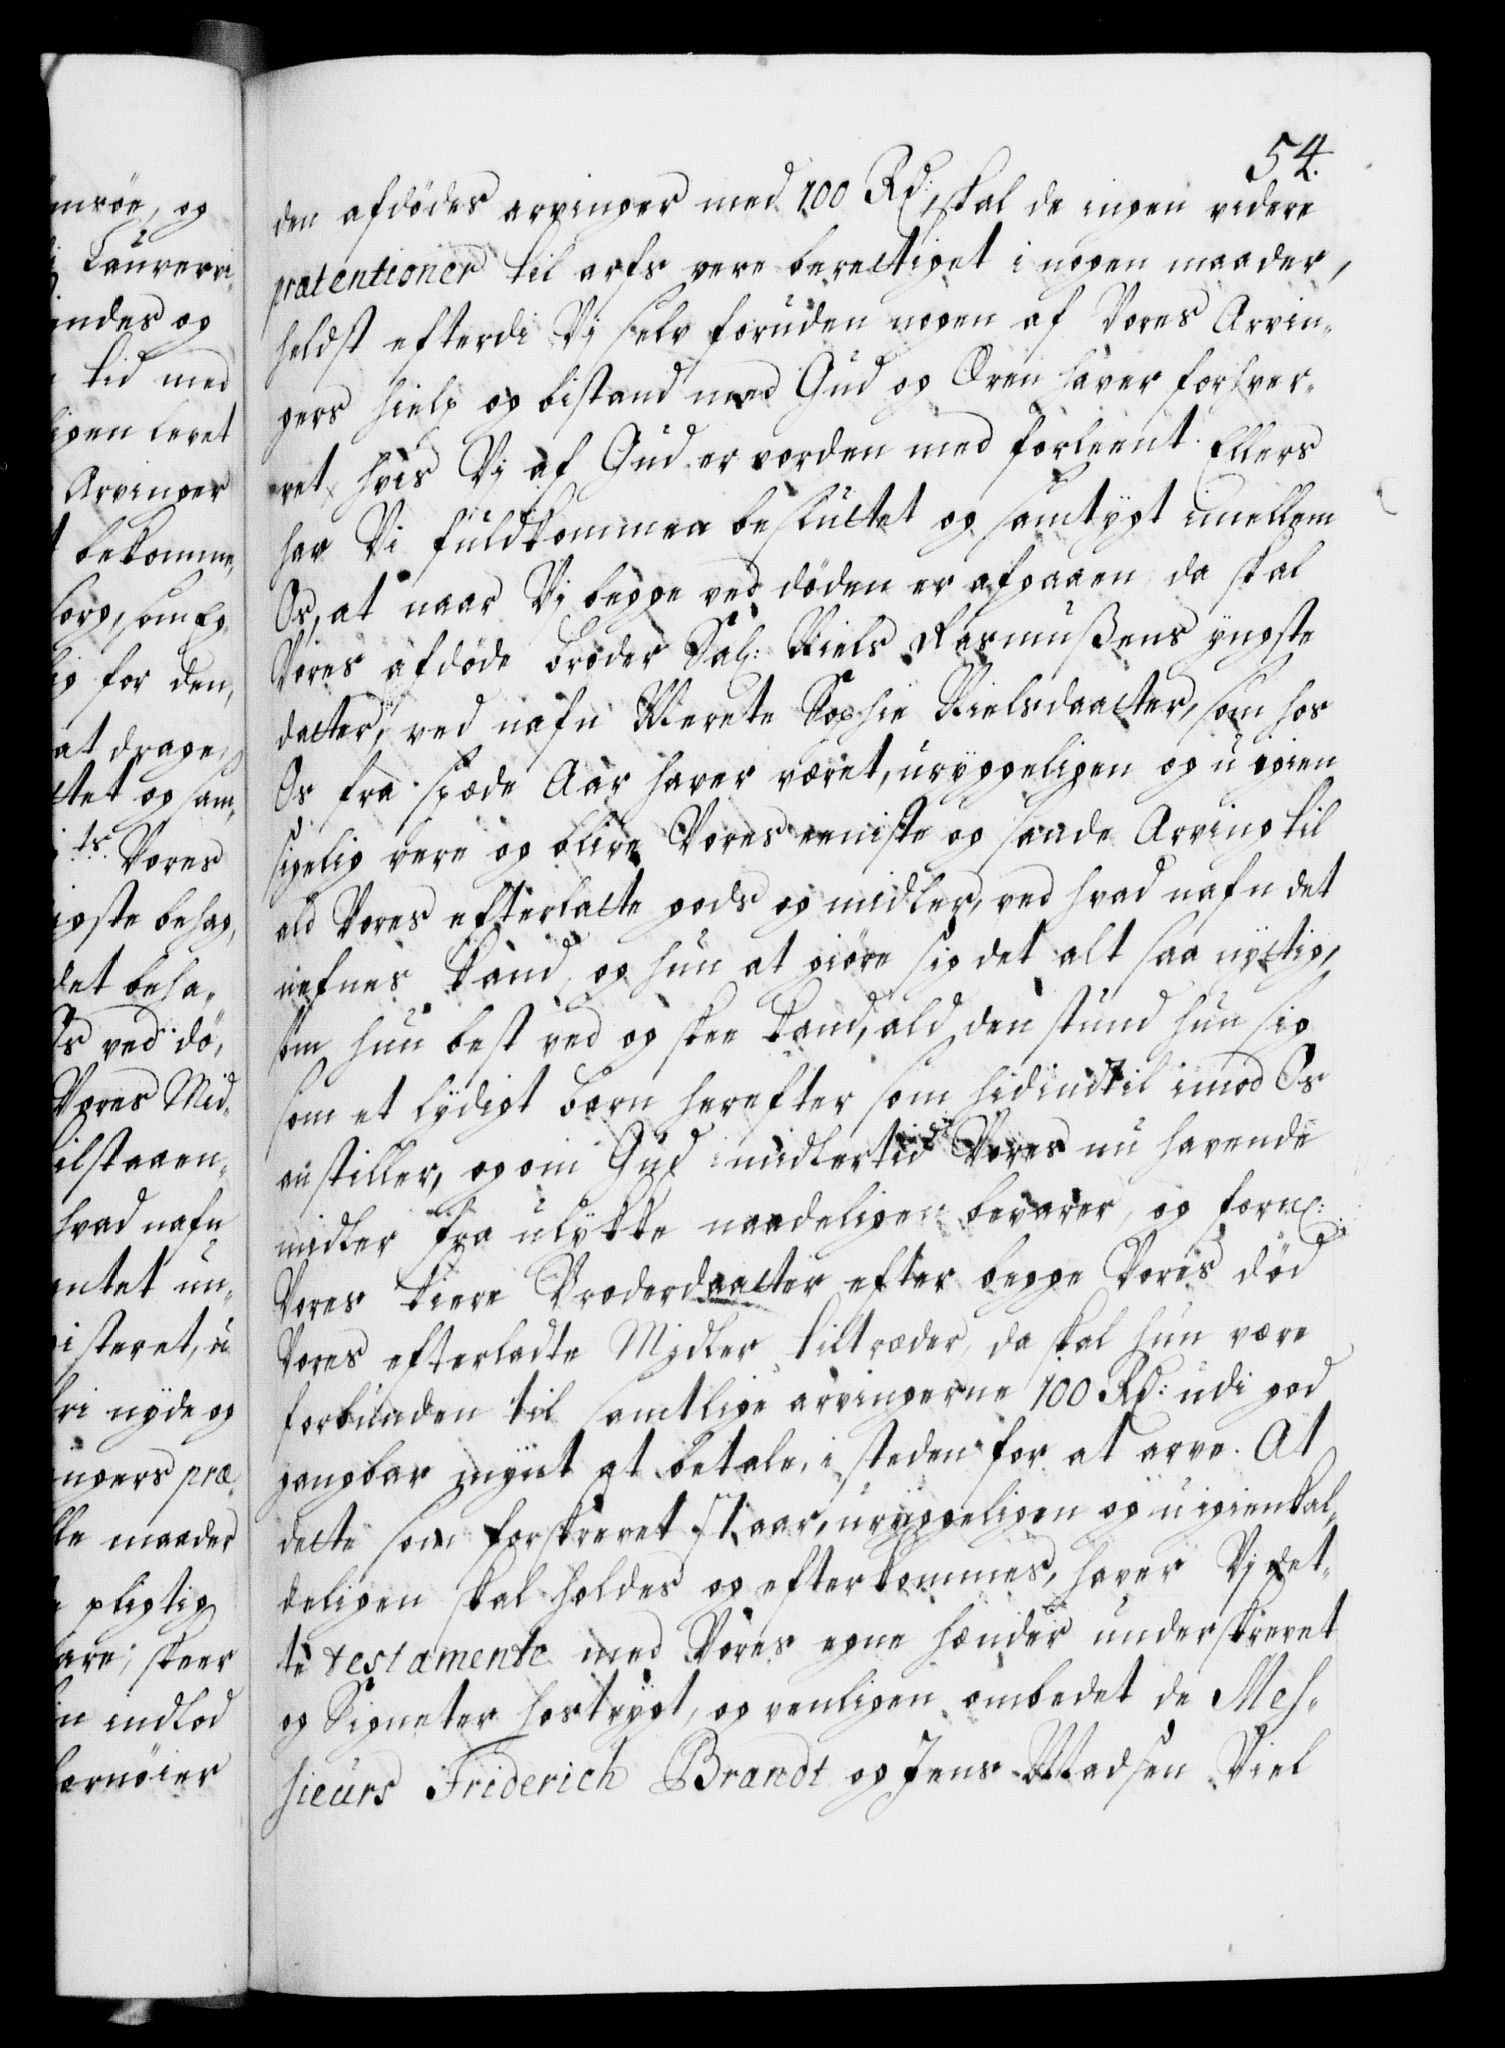 54.
den afdödes arvinger med 100 Rd: skal de ingen videre
prætentioner til arfs vere berettiget i nogen maader,
heldst efterdi Vj selv foruden nogen af Vores Arvin„
gers hielp og bistand med Gud og Æren haver forhver„
vet, hvis Vj af Gud er vorden med forleent. Ellers
har Vi fuldkommen besluttet og samtygt imellem
Os, at naar Vj begge ved döden er afgaaen, da skal
Vores afdöde broder Sal: Niels Rasmußens yngste
datter, ved nafn Merete Sophie Nielsdaatter, som hos
Os fra spæde Aar haver været, uryggeligen og uigien
sigelig vere og blive Vores eeniste og sande Arving til
ald Vores efterlatte gods og midler, ved hvad nafn det
nefnes kand, og hun at giöre sig det alt saa nyttig,
som hun best ved og skee kand, ald den stund hun sig
som et lydigt barn herefter som hidindtil imod Os
anstiller, og om Gud imidlertid Vores nu havende
midler fra ulykke naadeligen bevarer, og forn:
Vores kiere Broderdaatter efter begge Voris död
Vores efterladte Midler tiltræder, da skal hun være
forbunden til samtlige arvingerne 100 Rd: udi god
gangbar mynt at betale, i steden for at arve. At
dette som forskrevet staar, uryggeligen og uigienkal„
deligen skal holdes og efterkommes, haver Vj det„
te testamente med Vores egne hænder underskrevet
og Signeter hostrygt, og venligen ombedet de Mes„
sieurs Friderich Brandt og Jens Madsen Viel